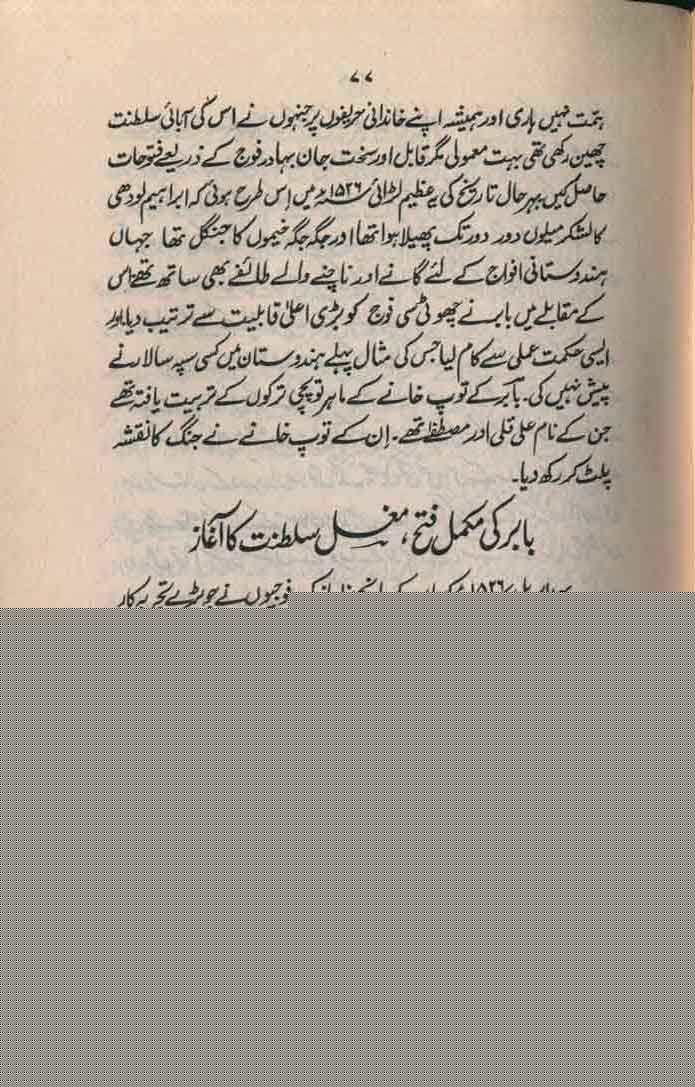 ۷۷
ہمت نہیں ہاری اور ہمیشہ اپنے خاندانی حریفوں پر جنہوں نے اس کی آبائی سلطنت
چھین رکھی تھی بہت معمولی مگر قابل اور سخت جان بہادر فوج کے ذریعے فتوحات
حاصل کیں بہرحال تاریخ کی یہ عظیم لڑائی ۱۵۲۶ء میں اِس طرح ہوئی کہ ابراہیم لودھی
کا لشکر میلوں دور دور تک پھیلا ہوا تھا اور جگہ جگہ خیموں کا جنگل تھا جہاں
ہندوستانی افواج کے لئے گانے اور ناچنے والے طائفے بھی ساتھ تھے، اس
کے مقابلے میں بابر نے چھوٹی سی فوج کو بڑی اعلیٰ قابلیت سے ترتیب دیا۔ اور
ایسی حکمت عملی سے کام لیا جس کی مثال پہلے ہندوستان میں کسی سپہ سالار نے
پیش نہیں کی۔ بابر کے توپ خانے کے ماہر توپچی ترکوں کے تربیت یافتہ تھے
جن کے نام علی قلی اور مصطفےٰ تھے۔ اِن کے توپ خانے نے جنگ کا نقشہ
پلٹ کر رکھ دیا۔
بابر کی مکمل فتح، مغل سلطنت کا آغاز
اپریل ۱۵۲۶ء کو فوجیوں نے جو بڑے تجربہ کار